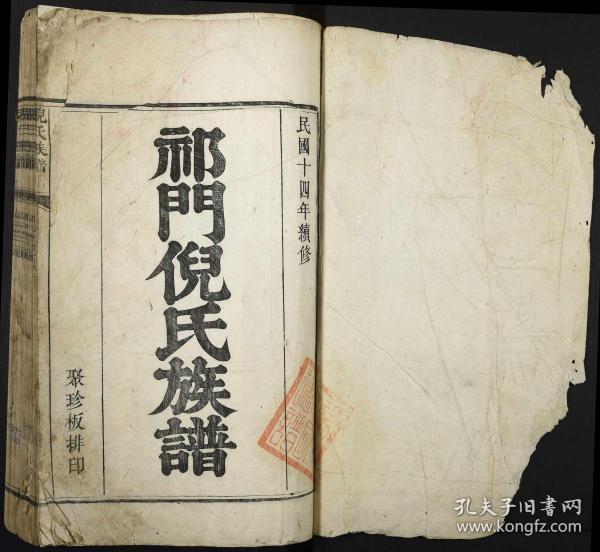 民國十四年續修
祁門倪氏族譜
聚珍板排印
倪氏族譜
孔夫子旧書网
www.kongfz.com